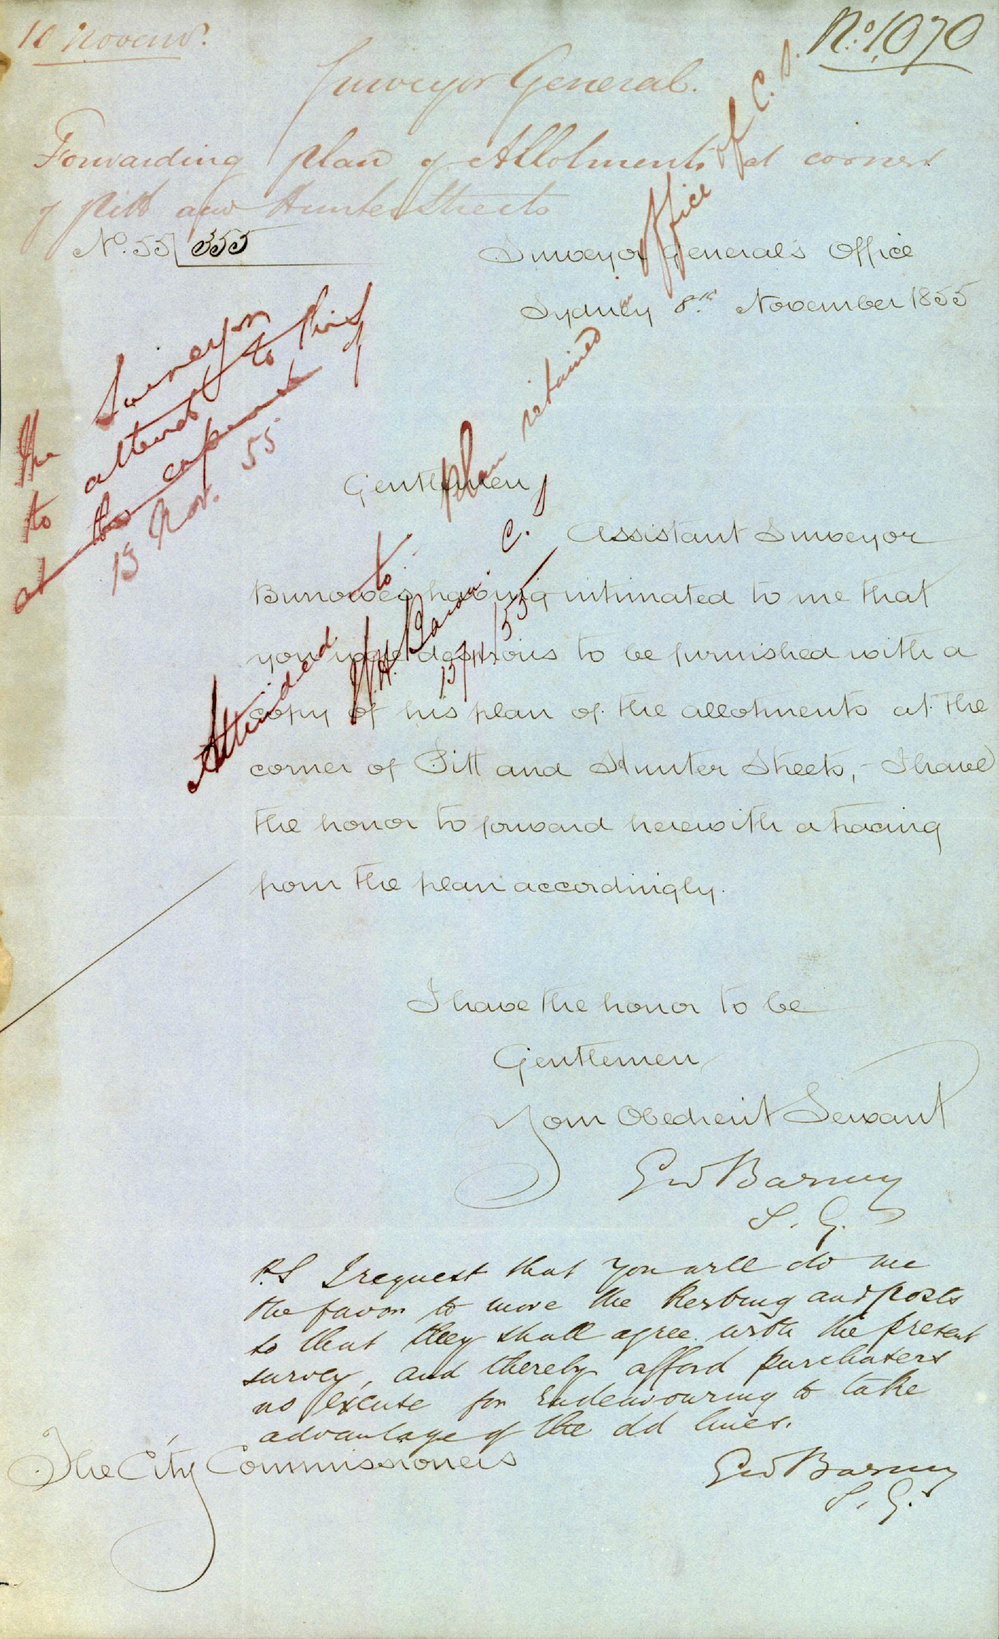 10 Novemr.
No. 1070
Surveyor General.
Forwarding plan of Allotments at corner
of Pitt and Hunter Streets
No. 55/355
Surveyor General's Office
Sydney 8th November 1855
The Surveyor
to attend to this
at the expense of
13 Nov. 55.
Gentlemen,
Assistant Surveyor
Burrowes having intimated to me that
you were desirous to be furnished with a
copy of his plan of the allotments at the
corner of Pitt and Hunter Streets, - I have
the honor to forward herewith a tracing
from the plan accordingly.
Attended to. plan retained in office of C. S.
W.H. C.S
13/11/55
I have the honor to be
Gentlemen
Your Obedient Servant
Geo Barney
S. G.
P.S I request that you will do me
the favor to move the Kerbing and posts
so that they shall agree with the present
survey, and thereby afford purchasers
no excuse for Endeavouring to take
advantage of the old lines.
Geo Barney
S. G.
The City Commissioners